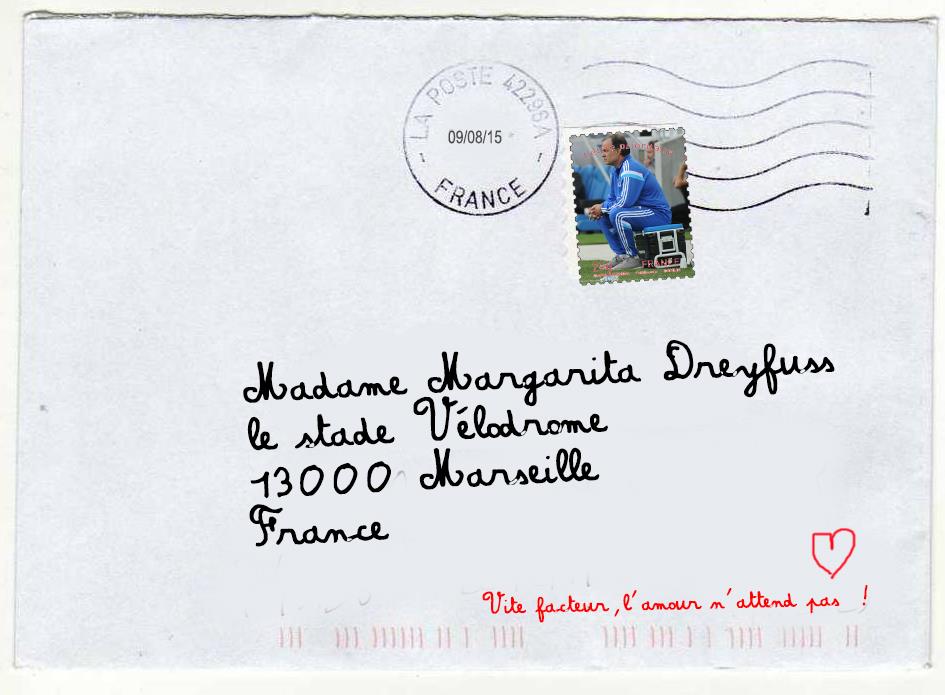 LA POSTE 42296A
09/08/15
FRANCE
FRANCE
Madame Margarita Dreyfuss
le stade Vélodrome
13000 Marseille
France
Vite facteur, l'amour n'attend pas !